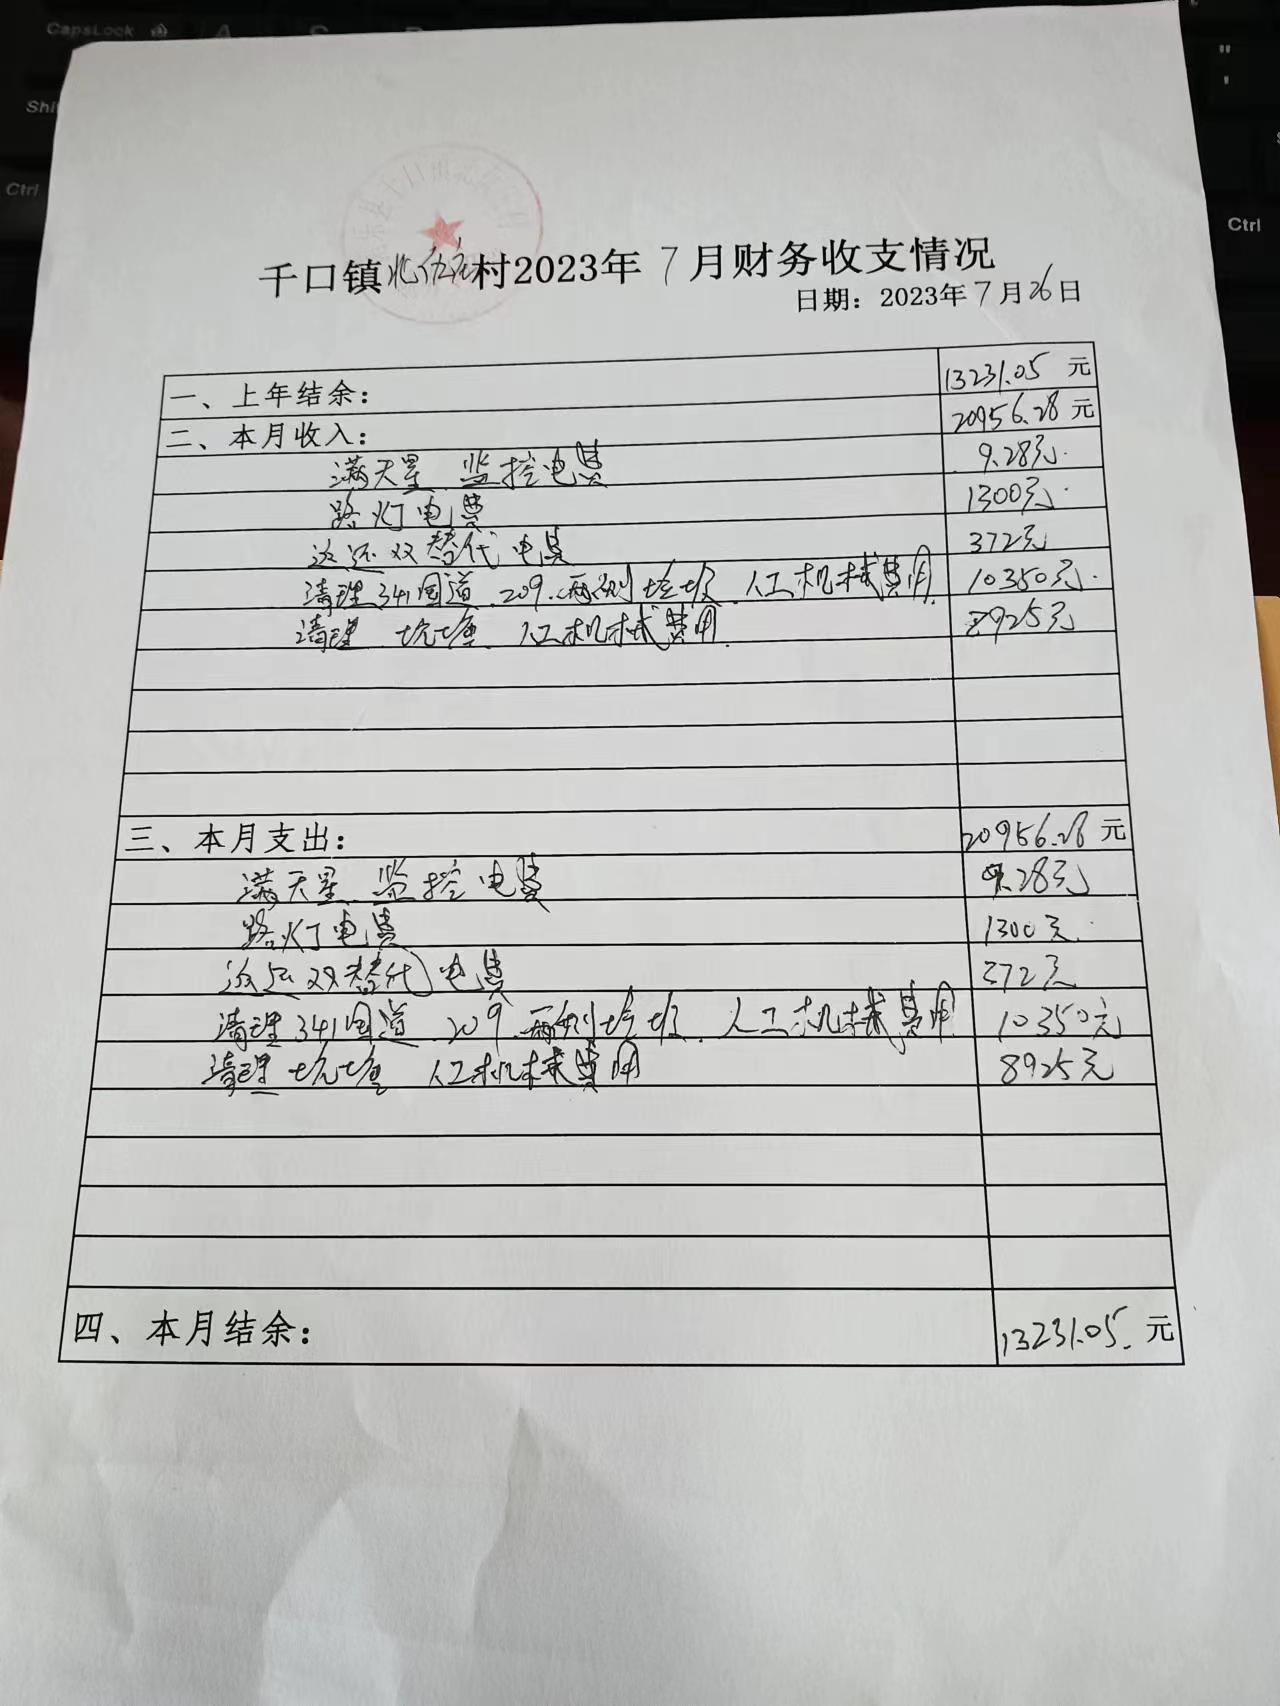 CapsLock
Shi
Ctrl
"
'
Ctrl
千口镇北伍庄村2023年7月财务收支情况
日期：2023年7月26日
一、上年结余： 13231.05 元
二、本月收入： 20956.28 元
满天星 监控电费 9.28元
路灯电费 1300元
返还双替代电费 372元
清理341国道.209.两侧垃圾 人工机械费用 10350元
清理 坑塘 人工机械费用 8925元
三、本月支出： 20956.28 元
满天星 监控电费 9.28元
路灯电费 1300元
返还双替代电费 372元
清理341国道 209.两侧垃圾 人工机械费用 10350元
清理 坑塘 人工机械费用 8925元
四、本月结余： 13231.05. 元